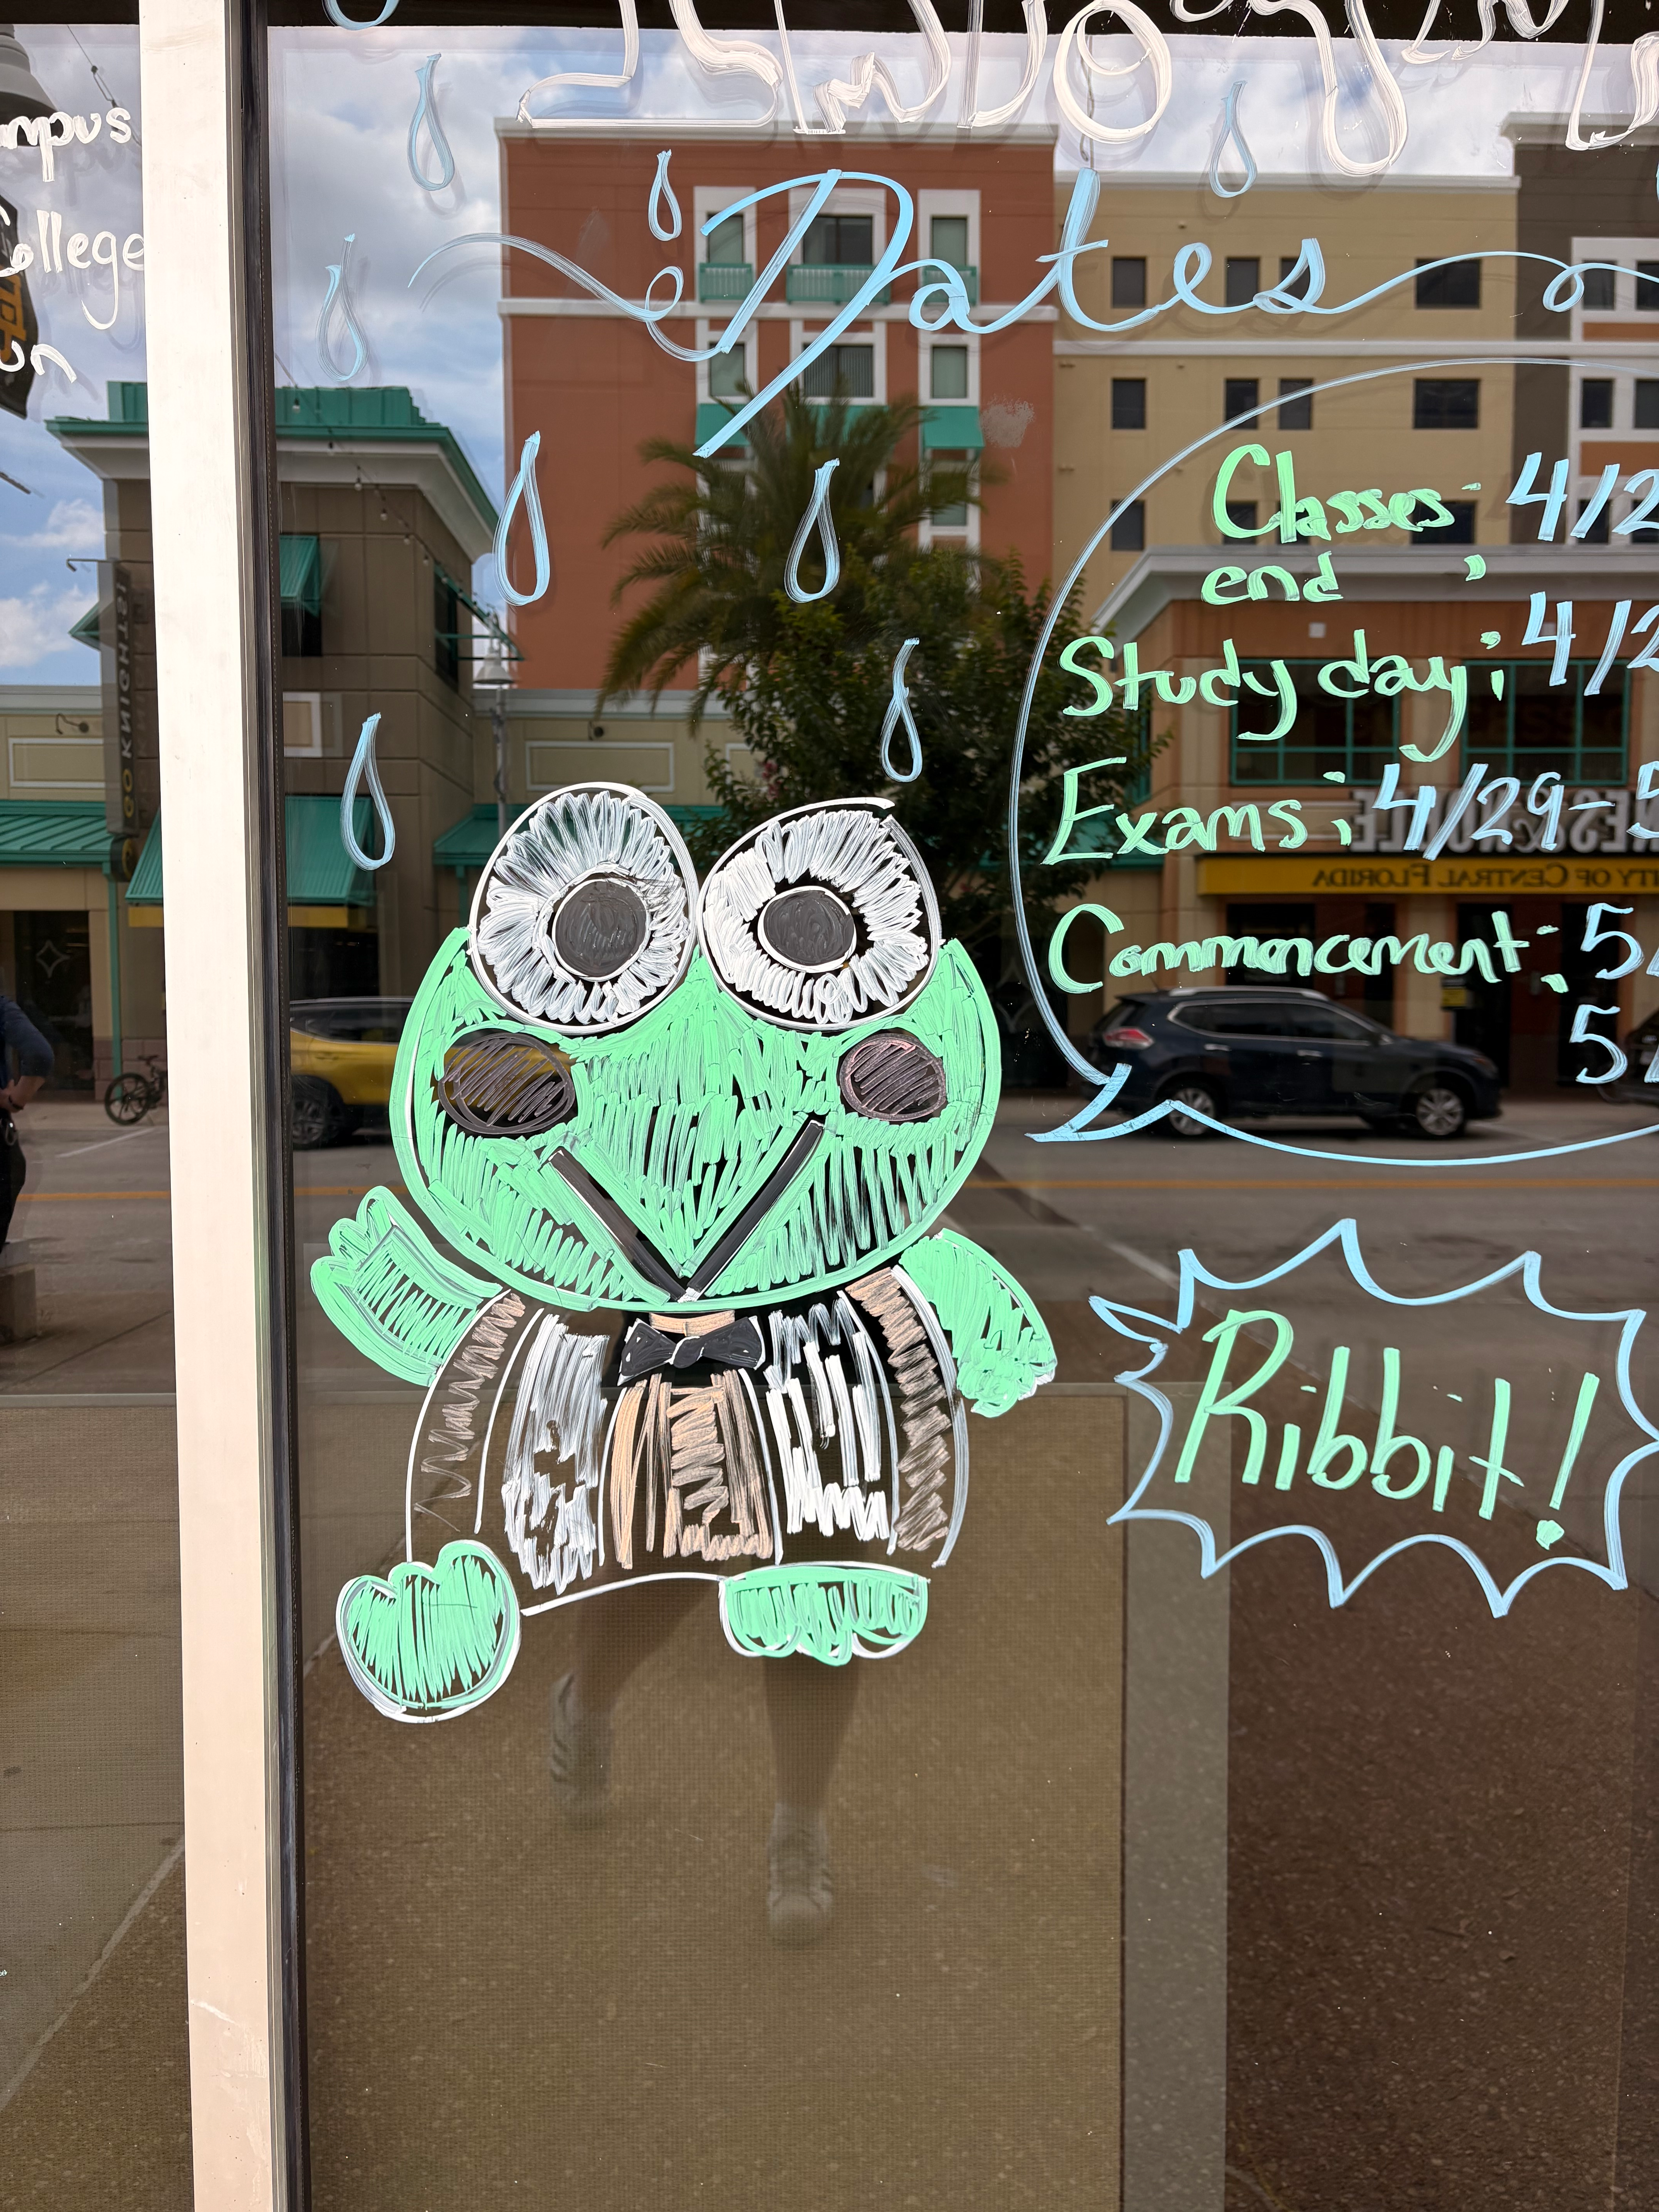 mpus
College
un
Dates
Classes: 4/2
end :
Study day: 4/2
Exams: 4/29-5
Commencement: 5/
5/
Ribbit!
GO KNIGHTS!
ES & NOBLE
ITY OF CENTRAL FLORIDA